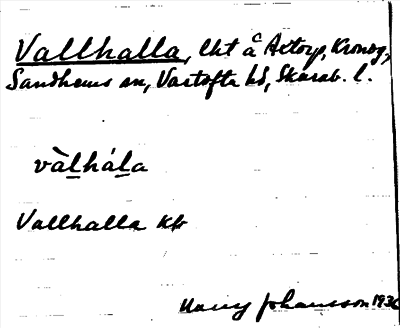 Vallhalla, lht å Aetorp, Kronog,
Sandhems sn, Vartofta hd, Skarab. l.
vàlhála
Vallhalla Kb
Harry Johansson 1936